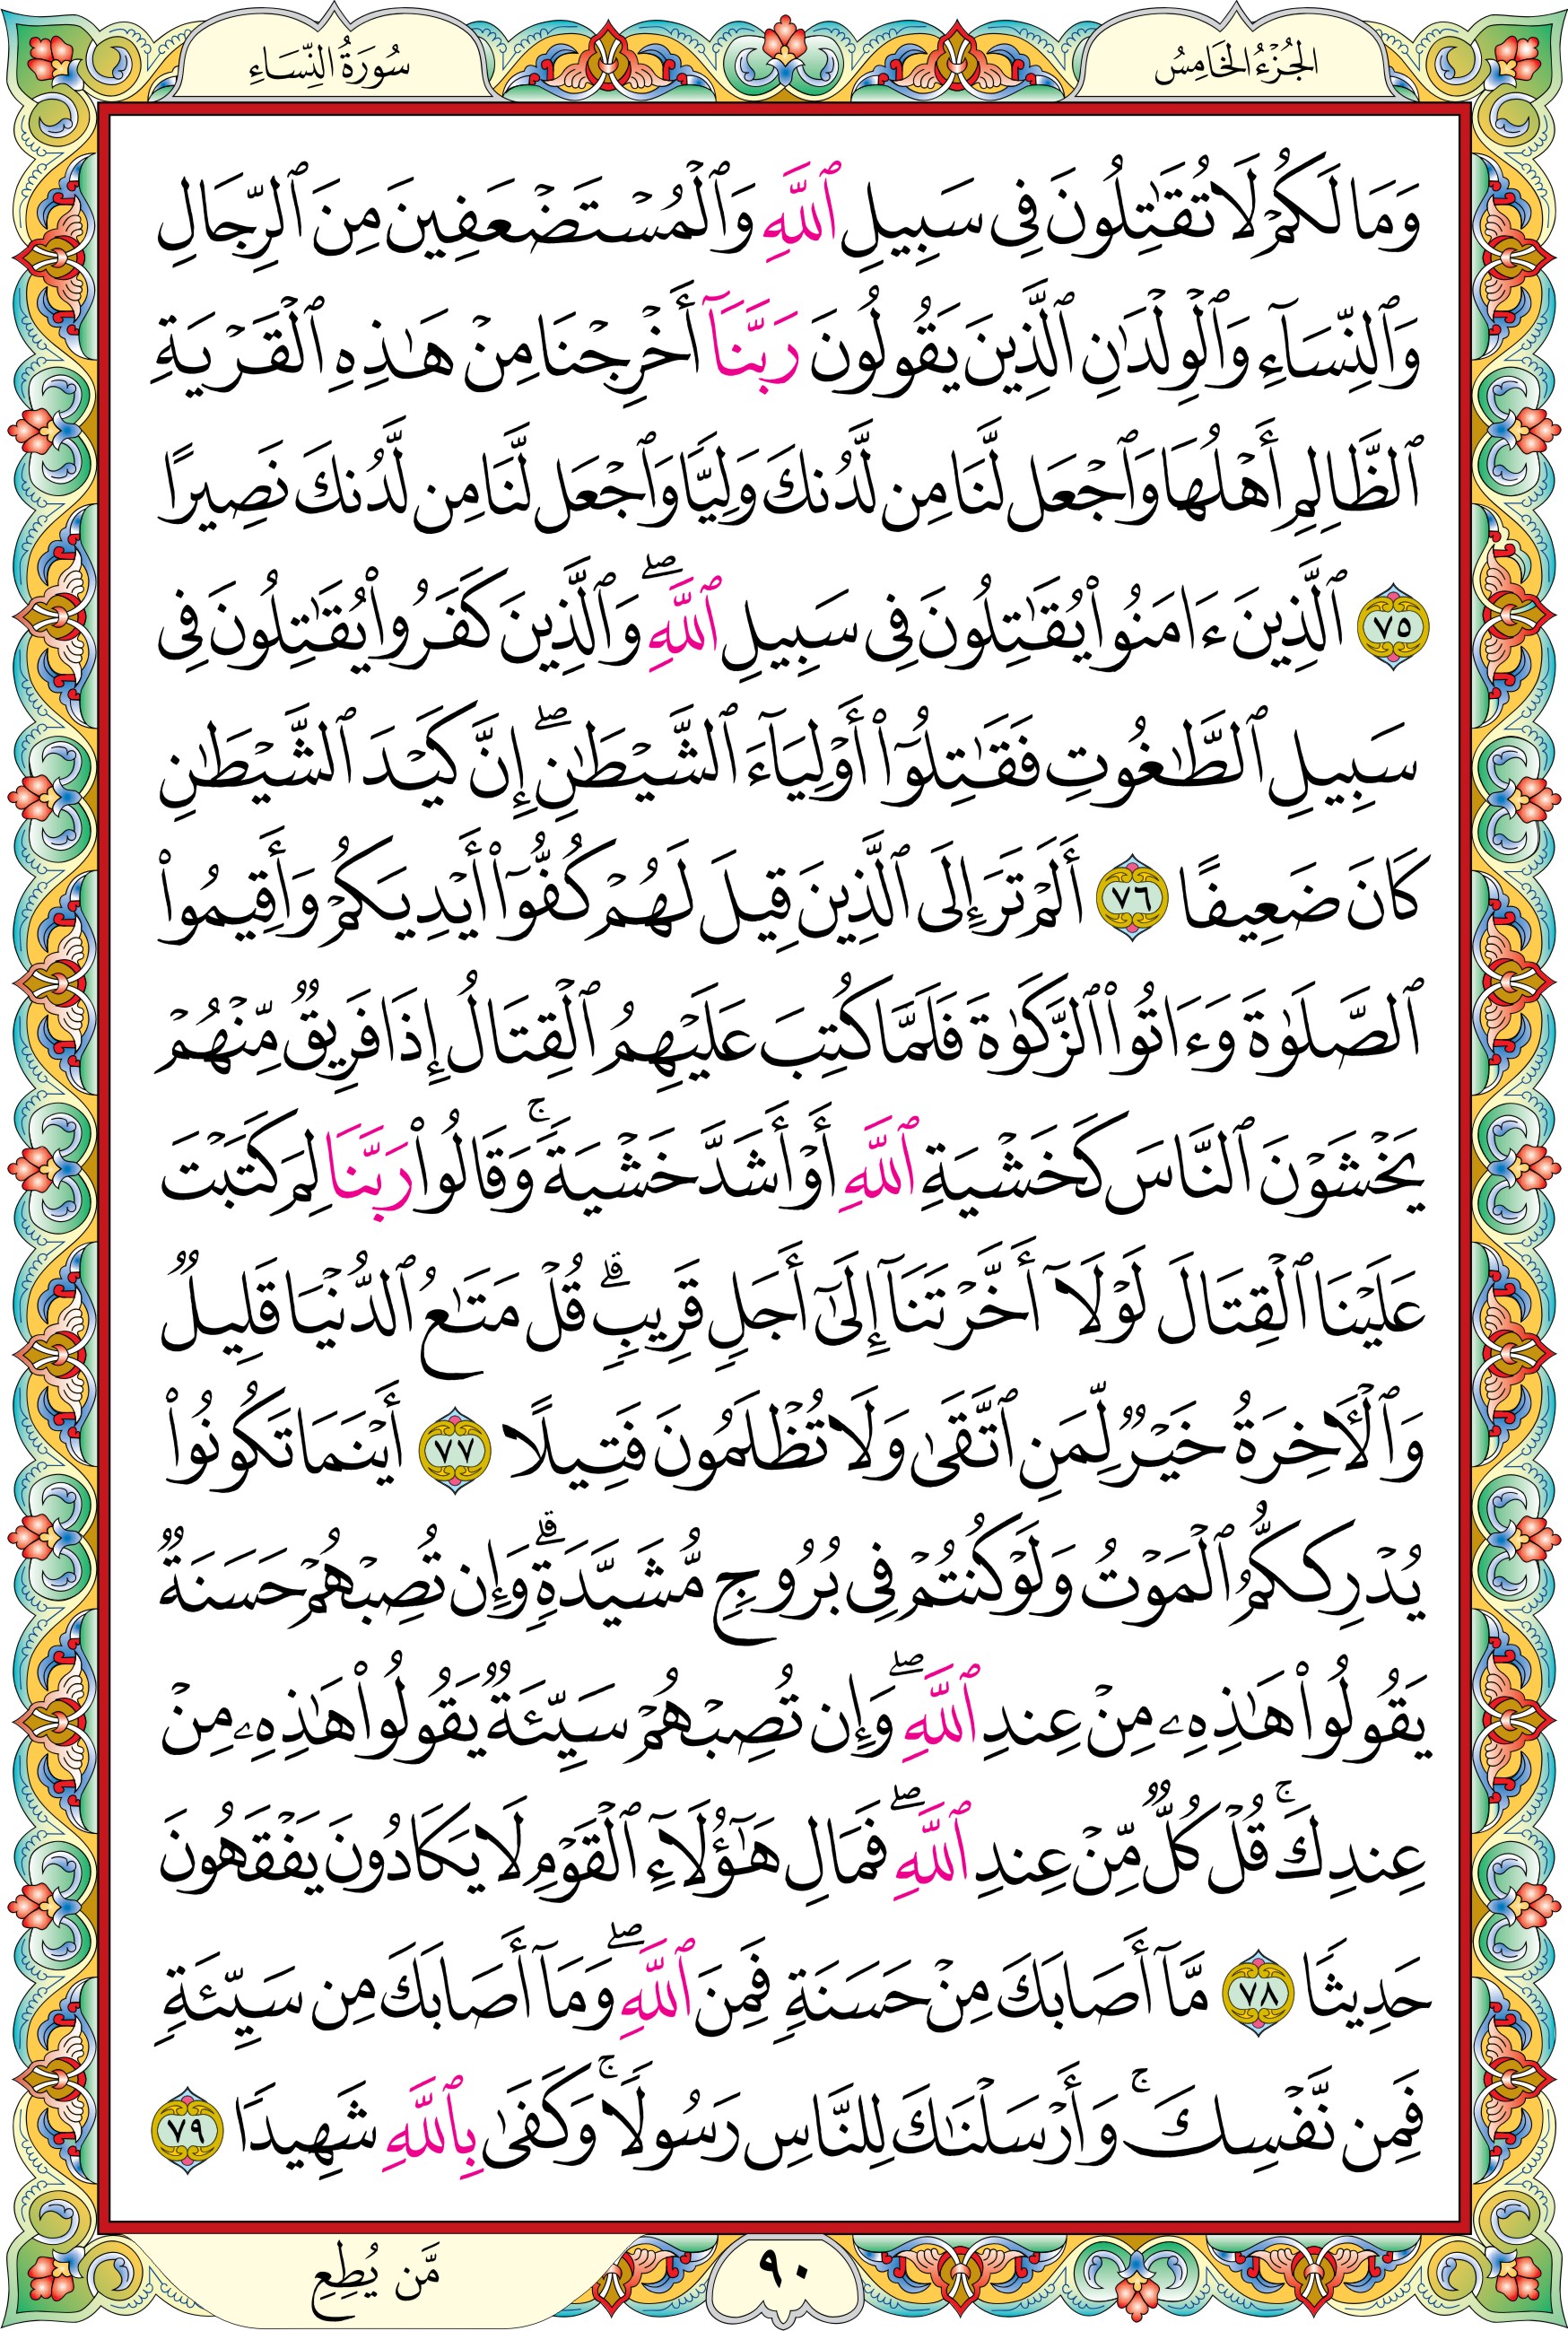 الجُزْءُ الخَامِسُ
سُورَةُ النِّسَاءِ
وَمَا لَكُمْ لَا تُقَٰتِلُونَ فِى سَبِيلِ ٱللَّهِ وَٱلْمُسْتَضْعَفِينَ مِنَ ٱلرِّجَالِ
وَٱلنِّسَآءِ وَٱلْوِلْدَٰنِ ٱلَّذِينَ يَقُولُونَ رَبَّنَآ أَخْرِجْنَا مِنْ هَٰذِهِ ٱلْقَرْيَةِ
ٱلظَّالِمِ أَهْلُهَا وَٱجْعَل لَّنَا مِن لَّدُنكَ وَلِيًّا وَٱجْعَل لَّنَا مِن لَّدُنكَ نَصِيرًا
٧٥ ٱلَّذِينَ ءَامَنُوا۟ يُقَٰتِلُونَ فِى سَبِيلِ ٱللَّهِ ۖ وَٱلَّذِينَ كَفَرُوا۟ يُقَٰتِلُونَ فِى
سَبِيلِ ٱلطَّٰغُوتِ فَقَٰتِلُوٓا۟ أَوْلِيَآءَ ٱلشَّيْطَٰنِ ۖ إِنَّ كَيْدَ ٱلشَّيْطَٰنِ
كَانَ ضَعِيفًا ٧٦ أَلَمْ تَرَ إِلَى ٱلَّذِينَ قِيلَ لَهُمْ كُفُّوٓا۟ أَيْدِيَكُمْ وَأَقِيمُوا۟
ٱلصَّلَوٰةَ وَءَاتُوا۟ ٱلزَّكَوٰةَ فَلَمَّا كُتِبَ عَلَيْهِمُ ٱلْقِتَالُ إِذَا فَرِيقٌ مِّنْهُمْ
يَخْشَوْنَ ٱلنَّاسَ كَخَشْيَةِ ٱللَّهِ أَوْ أَشَدَّ خَشْيَةً ۚ وَقَالُوا۟ رَبَّنَا لِمَ كَتَبْتَ
عَلَيْنَا ٱلْقِتَالَ لَوْلَآ أَخَّرْتَنَآ إِلَىٰٓ أَجَلٍ قَرِيبٍ ۗ قُلْ مَتَٰعُ ٱلدُّنْيَا قَلِيلٌ
وَٱلْـَٔاخِرَةُ خَيْرٌ لِّمَنِ ٱتَّقَىٰ وَلَا تُظْلَمُونَ فَتِيلًا ٧٧ أَيْنَمَا تَكُونُوا۟
يُدْرِككُّمُ ٱلْمَوْتُ وَلَوْ كُنتُمْ فِى بُرُوجٍ مُّشَيَّدَةٍ ۗ وَإِن تُصِبْهُمْ حَسَنَةٌ
يَقُولُوا۟ هَٰذِهِۦ مِنْ عِندِ ٱللَّهِ ۖ وَإِن تُصِبْهُمْ سَيِّئَةٌ يَقُولُوا۟ هَٰذِهِۦ مِنْ
عِندِكَ ۚ قُلْ كُلٌّ مِّنْ عِندِ ٱللَّهِ ۖ فَمَالِ هَٰٓؤُلَآءِ ٱلْقَوْمِ لَا يَكَادُونَ يَفْقَهُونَ
حَدِيثًا ٧٨ مَّآ أَصَابَكَ مِنْ حَسَنَةٍ فَمِنَ ٱللَّهِ ۖ وَمَآ أَصَابَكَ مِن سَيِّئَةٍ
فَمِن نَّفْسِكَ ۚ وَأَرْسَلْنَٰكَ لِلنَّاسِ رَسُولًا ۚ وَكَفَىٰ بِٱللَّهِ شَهِيدًا ٧٩
٩٠
مَّن يُطِعِ